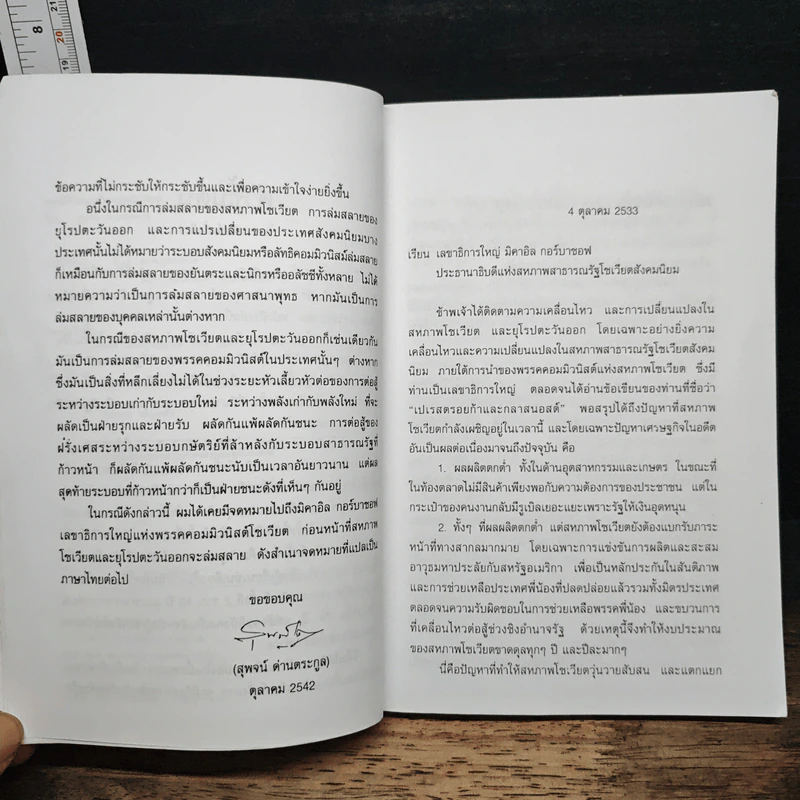 8
19 20 21
ข้อความที่ไม่กระชับให้กระชับขึ้นและเพื่อความเข้าใจง่ายยิ่งขึ้น
อนึ่งในกรณีการล่มสลายของสหภาพโซเวียต การล่มสลายของ
ยุโรปตะวันออก และการแปรเปลี่ยนของประเทศสังคมนิยมบาง
ประเทศนั้นไม่ได้หมายว่าระบอบสังคมนิยมหรือลัทธิคอมมิวนิสม์ล่มสลาย
ก็เหมือนกับการล่มสลายของยันตระและนิกรหรืออลัชชีทั้งหลาย ไม่ได้
หมายความว่าเป็นการล่มสลายของศาสนาพุทธ หากมันเป็นการ
ล่มสลายของบุคคลเหล่านั้นต่างหาก
ในกรณีของสหภาพโซเวียตและยุโรปตะวันออกก็เช่นเดียวกัน
มันเป็นการล่มสลายของพรรคคอมมิวนิสต์ในประเทศนั้นๆ ต่างหาก
ซึ่งมันเป็นสิ่งที่หลีกเลี่ยงไม่ได้ในช่วงระยะหัวเลี้ยวหัวต่อของการต่อสู้
ระหว่างระบอบเก่ากับระบอบใหม่ ระหว่างพลังเก่ากับพลังใหม่ ที่จะ
ผลัดเป็นฝ่ายรุกและฝ่ายรับ ผลัดกันแพ้ผลัดกันชนะ การต่อสู้ของ
ฝรั่งเศสระหว่างระบอบกษัตริย์ที่ล้าหลังกับระบอบสาธารณรัฐที่
ก้าวหน้า ก็ผลัดกันแพ้ผลัดกันชนะนับเป็นเวลาอันยาวนาน แต่ผล
สุดท้ายระบอบที่ก้าวหน้ากว่าก็เป็นฝ่ายชนะดังที่เห็นๆ กันอยู่
ในกรณีดังกล่าวนี้ ผมได้เคยมีจดหมายไปถึงมิคาอิล กอร์บาชอฟ
เลขาธิการใหญ่แห่งพรรคคอมมิวนิสต์โซเวียต ก่อนหน้าที่สหภาพ
โซเวียตและยุโรปตะวันออกจะล่มสลาย ดังสำเนาจดหมายที่แปลเป็น
ภาษาไทยต่อไป
ขอขอบคุณ
(สุพจน์ ด่านตระกูล)
ตุลาคม 2542
4 ตุลาคม 2533
เรียน เลขาธิการใหญ่ มิคาอิล กอร์บาชอฟ
ประธานาธิบดีแห่งสหภาพสาธารณรัฐโซเวียตสังคมนิยม
ข้าพเจ้าได้ติดตามความเคลื่อนไหว และการเปลี่ยนแปลงใน
สหภาพโซเวียต และยุโรปตะวันออก โดยเฉพาะอย่างยิ่งความ
เคลื่อนไหวและความเปลี่ยนแปลงในสหภาพสาธารณรัฐโซเวียตสังคม
นิยม ภายใต้การนำของพรรคคอมมิวนิสต์แห่งสหภาพโซเวียต ซึ่งมี
ท่านเป็นเลขาธิการใหญ่ ตลอดจนได้อ่านข้อเขียนของท่านที่ชื่อว่า
“เปเรสตรอยก้าและกลาสนอสต์” พอสรุปได้ถึงปัญหาที่สหภาพ
โซเวียตกำลังเผชิญอยู่ในเวลานี้ และโดยเฉพาะปัญหาเศรษฐกิจในอดีต
อันเป็นผลต่อเนื่องมาจนถึงปัจจุบัน คือ
1. ผลผลิตตกต่ำ ทั้งในด้านอุตสาหกรรมและเกษตร ในขณะที่
ในท้องตลาดไม่มีสินค้าเพียงพอกับความต้องการของประชาชน แต่ใน
กระเป๋าของคนงานกลับมีรูเบิลเยอะแยะเพราะรัฐให้เงินอุดหนุน
2. ทั้งๆ ที่ผลผลิตตกต่ำ แต่สหภาพโซเวียตยังต้องแบกรับภาระ
หน้าที่ทางสากลมากมาย โดยเฉพาะการแข่งขันการผลิตและสะสม
อาวุธมหาประลัยกับสหรัฐอเมริกา เพื่อเป็นหลักประกันในสันติภาพ
และการช่วยเหลือประเทศพี่น้องที่ปลดปล่อยแล้วรวมทั้งมิตรประเทศ
ตลอดจนความรับผิดชอบในการช่วยเหลือพรรคพี่น้อง และขบวนการ
ที่เคลื่อนไหวต่อสู้ช่วงชิงอำนาจรัฐ ด้วยเหตุนี้จึงทำให้งบประมาณ
ของสหภาพโซเวียตขาดดุลทุกๆ ปี และปีละมากๆ
นี่คือปัญหาที่ทำให้สหภาพโซเวียตวุ่นวายสับสน และแตกแยก